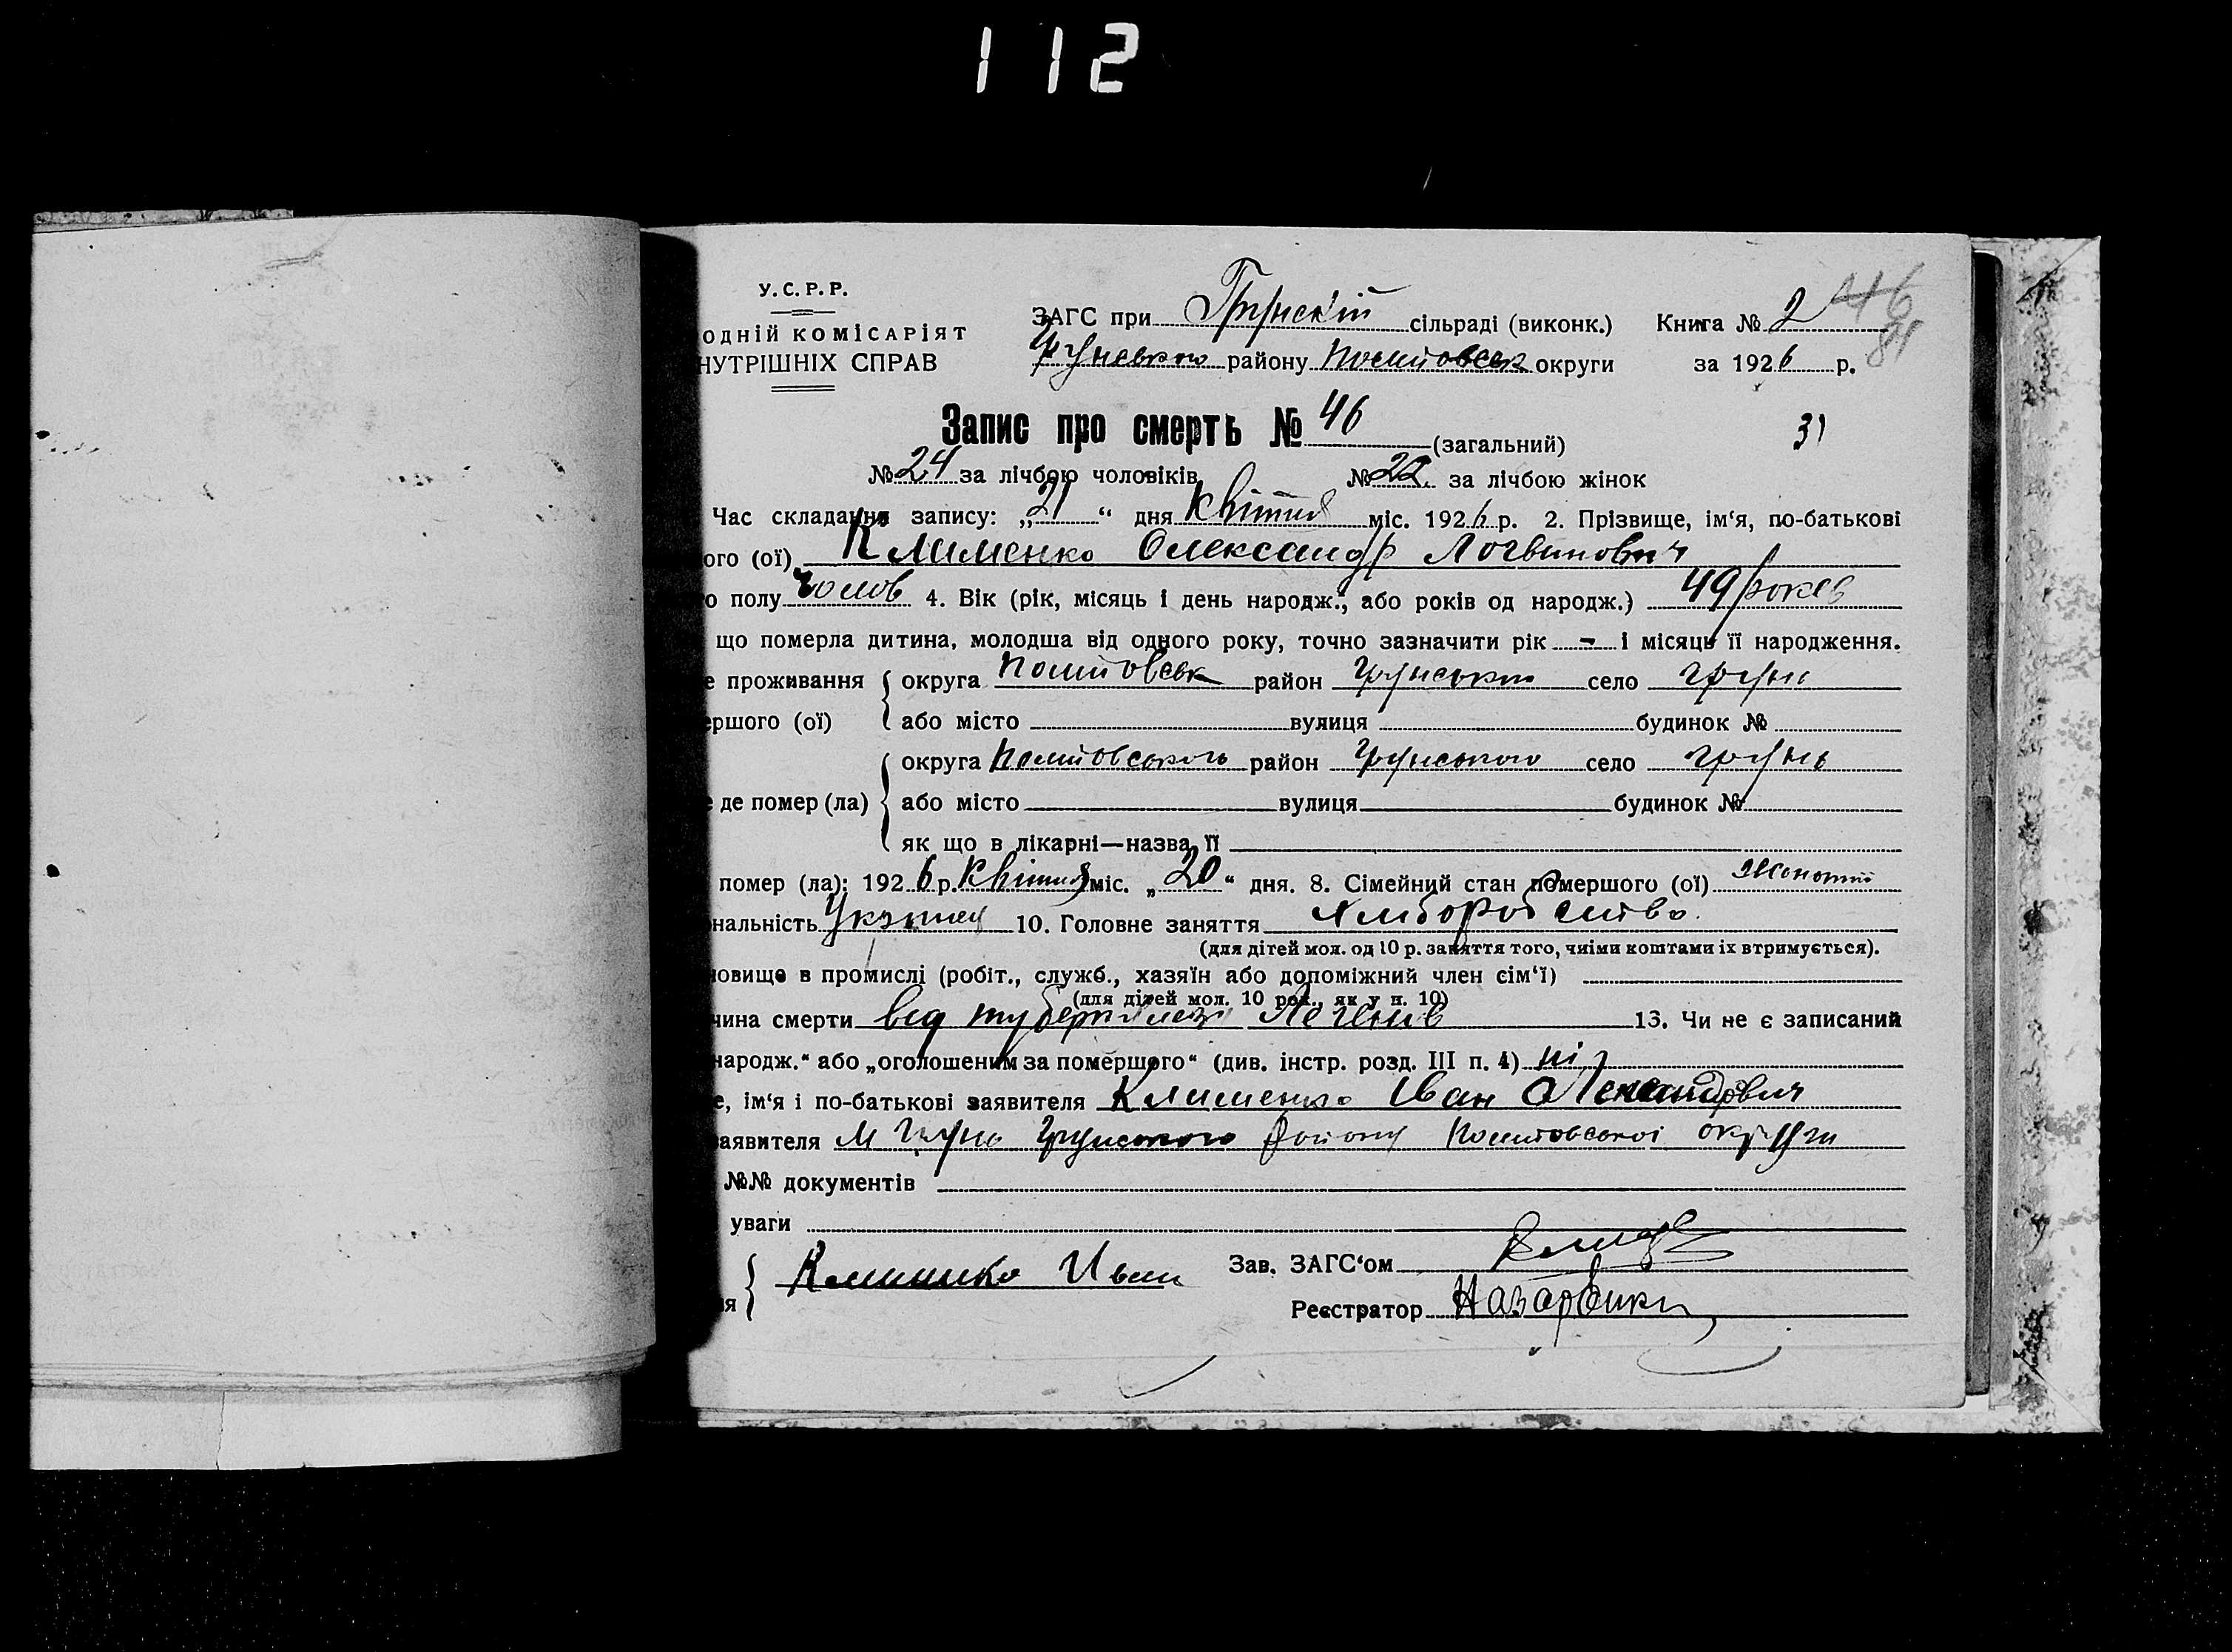 112
У.С.Р.Р.
ОДНІЙ КОМІСАРІЯТ
НУТРІШНІХ СПРАВ
ЗАГС при Грунскій сільраді (виконк.) Книга № 2 46
Грунського району Полтовськ округи за 1926 р. 81
Запис про смерть № 46 (загальний) 31
№ 24 за лічбою чоловіків № 22 за лічбою жінок
Час складання запису: „21“ дня Квітня міс. 1926 р. 2. Прізвище, ім‘я, по-батькові
ого (ої) Клименко Олександр Логвинович
о полу чолов 4. Вік (рік, місяць і день народж., або років од народж.) 49 рокев
що померла дитина, молодша від одного року, точно зазначити рік – і місяць її народження.
е проживання округа Полтовськ район Грунського село Грунь
ершого (ої) або місто вулиця будинок №
округа Полтовського район Грунського село Грунь
е де помер (ла) або місто вулиця будинок №
як що в лікарні—назва її
помер (ла): 1926 р. Квітня міс. „20“ дня. 8. Сімейний стан помершого (ої) Жонатий
нальність Українец 10. Головне заняття Хлиборобство.
(для дітей мол. од 10 р. заняття того, чиїми коштами їх втримується).
новище в промислі (робіт., служб., хазяїн або допоміжний член сім‘ї)
(для дітей мол. 10 рок., як у п. 10)
чина смерти вед туберкулеза Легенів 13. Чи не є записаний
народж.“ або „оголошеним за помершого“ (див. інстр. розд. III п. 4) ні
е, ім‘я і по-батькові заявителя Клименко Іван Олександрович
аявителя М Грунь Грунского Району Полтовської округи
№№ документів
уваги
Клименко Иван Зав. ЗАГС‘ом
ія Реєстратор Назаренко